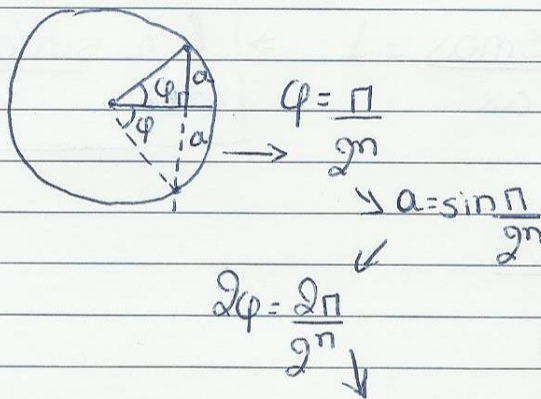 a
φ
φ
a
φ = π/2ⁿ
a = sin π/2ⁿ
2φ = 2π/2ⁿ